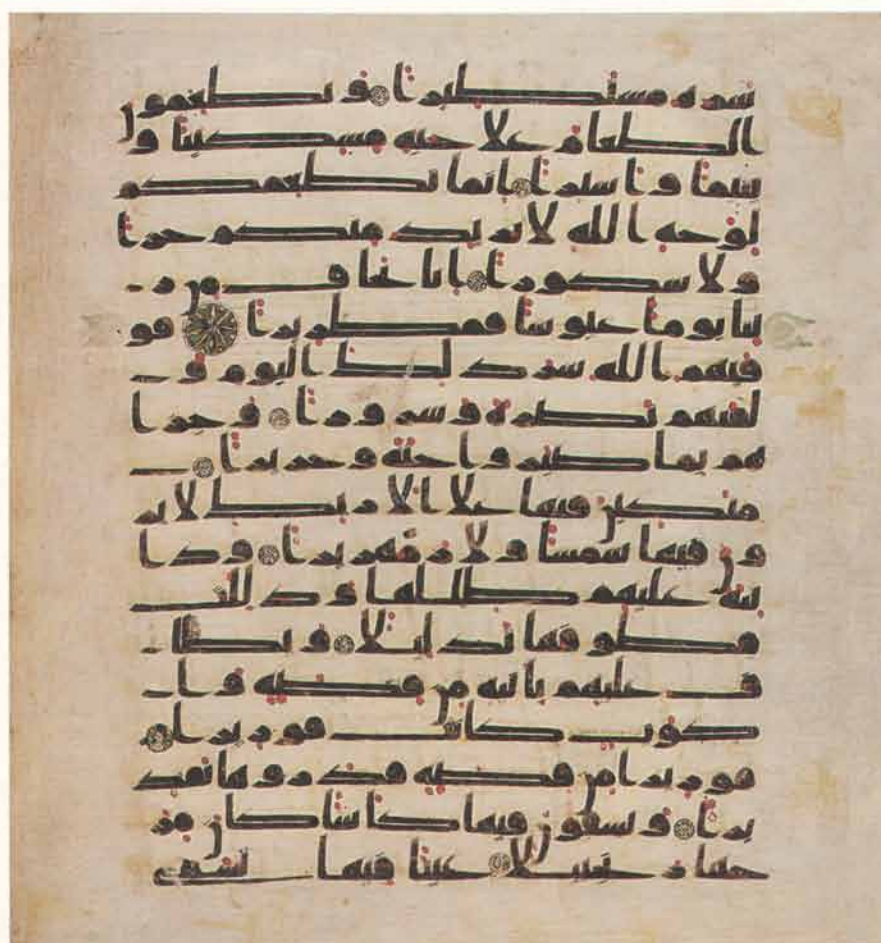 شره مستطيرا و يطعمون
الطعام علا حبه مسكينا و
يتيما و اسيرا انما نطعمكم
لوجه الله لا نريد منكم جزا
و لا شكورا انا نخاف من ر
بنا يوما عبوسا قمطريرا فو
قيهم الله شر ذلك اليوم و
لقيهم نضرة و سرورا و جزا
هم بما صبروا جنة و حريرا
متكين فيها علا الاريك لا ير
ون فيها شمسا و لا زمهريرا و دا
نية عليهم ظللها و ذللت
قطوفها تذليلا و يطا
ف عليهم بانية من فضة و ا
كوب كانت قوريرا
قوريرا من فضة قدروها تقد
يرا و يسقون فيها كاسا كان مز
جها زنجبيلا عينا فيها تسمى